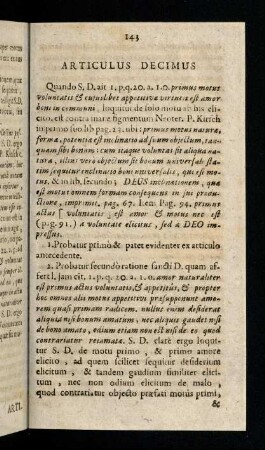 143
ARTICULUS DECIMUS
Quando S. D. ait 1. p. q. 20. a. 1. o. primus motus
voluntatis & cujuslibet appetitivæ virtutis est amor
boni in communi, loquitur de solo motu ab illa eli-
cito, est contra mare figmentum Neoter. P. Kirsch
in primo suo lib pag. 23. ubi: primus motus natura,
forma, potentia est inclinatio ad suum objectum, tan-
quam sibi bonum: cum itaque voluntas sit aliqua natu-
ra, illius vero objectum sit bonum universale statim
sequitur inclinatio boni universalis, quæ est mo-
tus. & in lib. secundo DEUS inclinationem, qua
est motus omnem formam consequens in sua produ-
ctione, imprimit, pag. 67. Lem Pag. 94. primus
actus [voluntatis] est amor & motus nec est
(p. q. 91.) a voluntate elicitus, sed à DEO im-
pressus.
1. Probatur primò & patet evidenter ex articulo
antecedente.
2. Probatur secundò ratione sancti D. quam as-
fert l. jam cit. 1. p. q. 20. a 1. o. amor naturaliter
est primus actus voluntatis, & appetitus, & propter
hoc omnes alii motus appetitivi præsupponunt amo-
rem quasi primam radicem. nullus enim desiderat
aliquid nisi bonum amatum. nec aliquis gaudet nisi
de bono amato, odium etiam non est nisi de eo quod
contrariatur rei amatæ. S. D. clarè ergo loqui-
tur S. D. de motu primo, & primo amore
elicito, ad quem scilicet sequitur desiderium
elicitum, & tandem gaudium similiter elici-
tum, nec non odium elicitum de malo,
quod contrariatur objecto præfati motus primi,
&